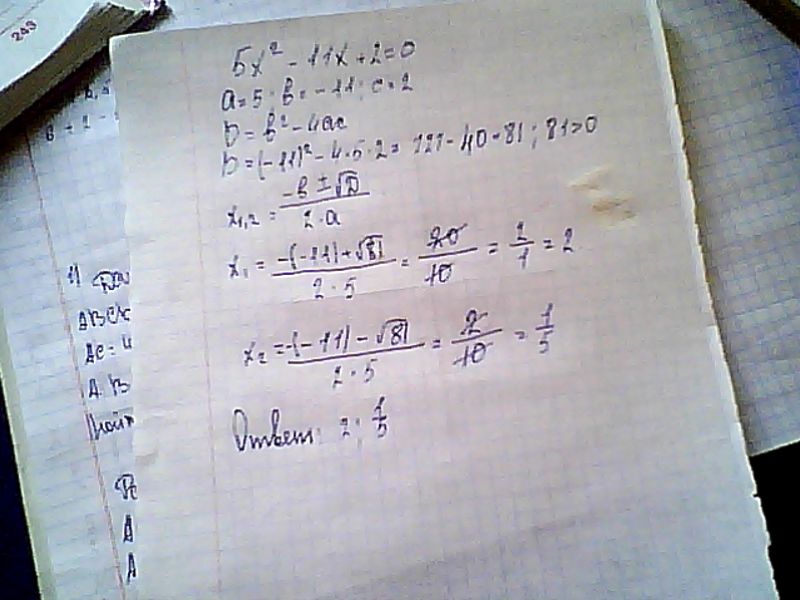 243
5x² - 11x + 2 = 0
a = 5; b = -11; c = 2
D = b² - 4ac
D = (-11)² - 4·5·2 = 121 - 40 = 81; 81 > 0
x₁,₂ = (-b ± √D) / (2·a)
x₁ = (-(-11) + √81) / (2·5) = 20/10 = 2/1 = 2
x₂ = (-(-11) - √81) / (2·5) = 2/10 = 1/5
Ответ: 2; 1/5
1)
АВС
АС = 4
А
А